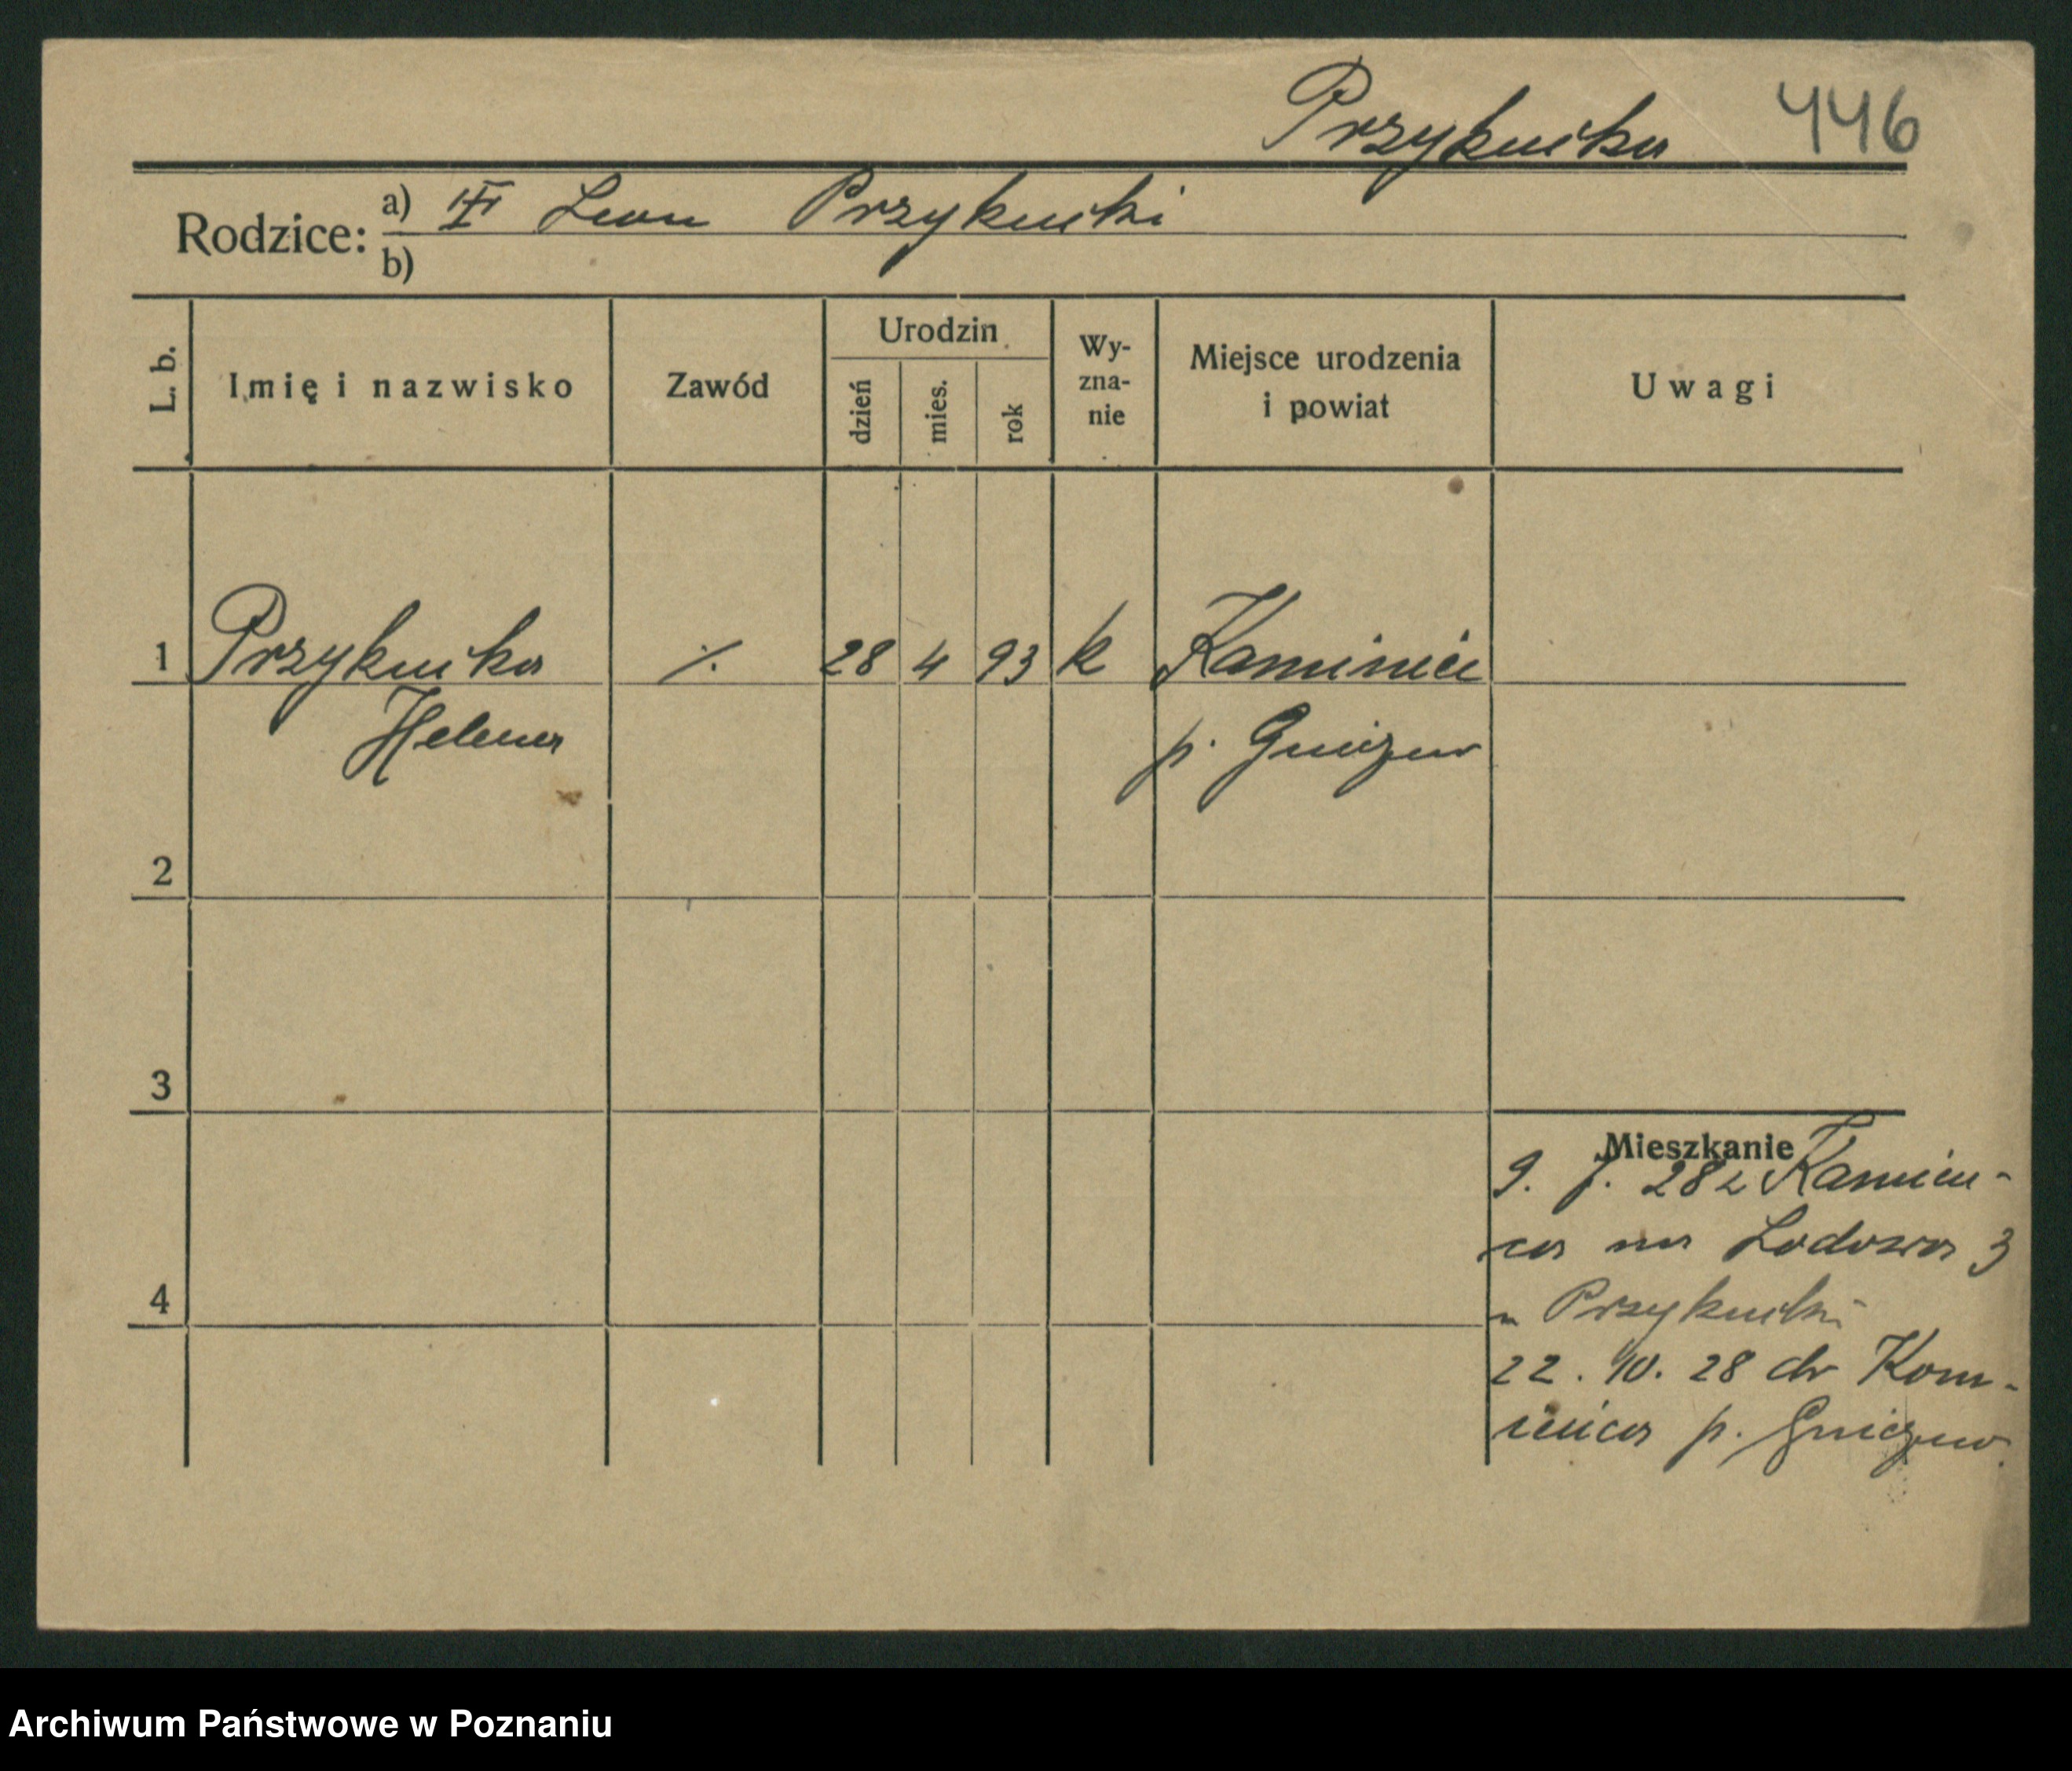 Przykucka 446
Rodzice: a) Leon Przykucki
b)
L. b. Imię i nazwisko Zawód Urodzin dzień mies. rok Wy-zna-nie Miejsce urodzenia i powiat Uwagi
1 Przykucka ./. 28 4 93 k Kamieniec
Helena p. Gniezno
2
3
Mieszkanie
9. 7. 28 z Kamień-
ca na Lodowa 3
4
u Przykucki
22. 10. 28 do Kam-
ieńca p. Gniezno
Archiwum Państwowe w Poznaniu